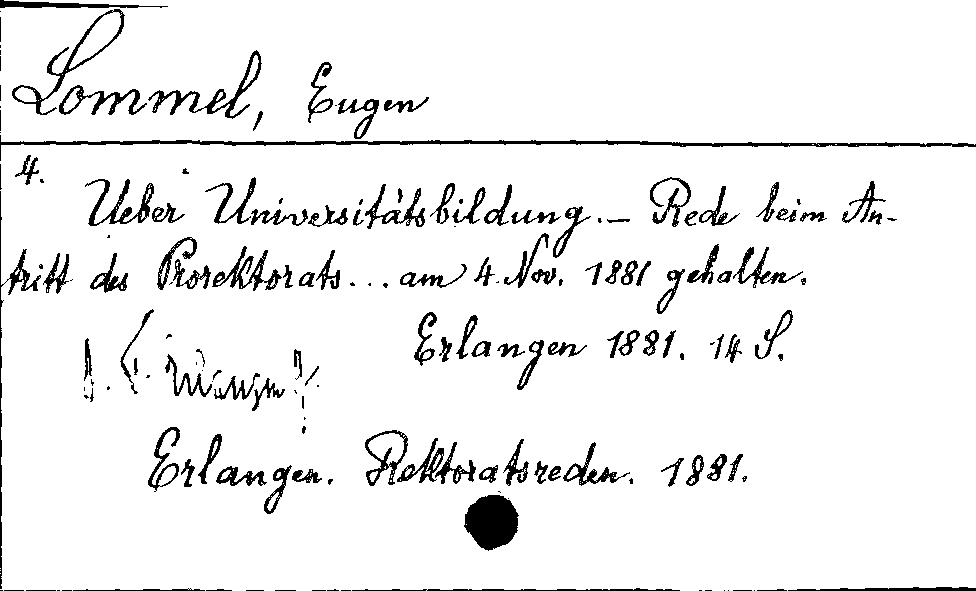 Lommel, Eugen
4.
Ueber Universitätsbildung. – Rede beim An-
tritt des Prorektorats... am 4. Nov. 1881 gehalten.
Erlangen 1881. 14 S.
Erlangen. Rektoratsreden. 1881.